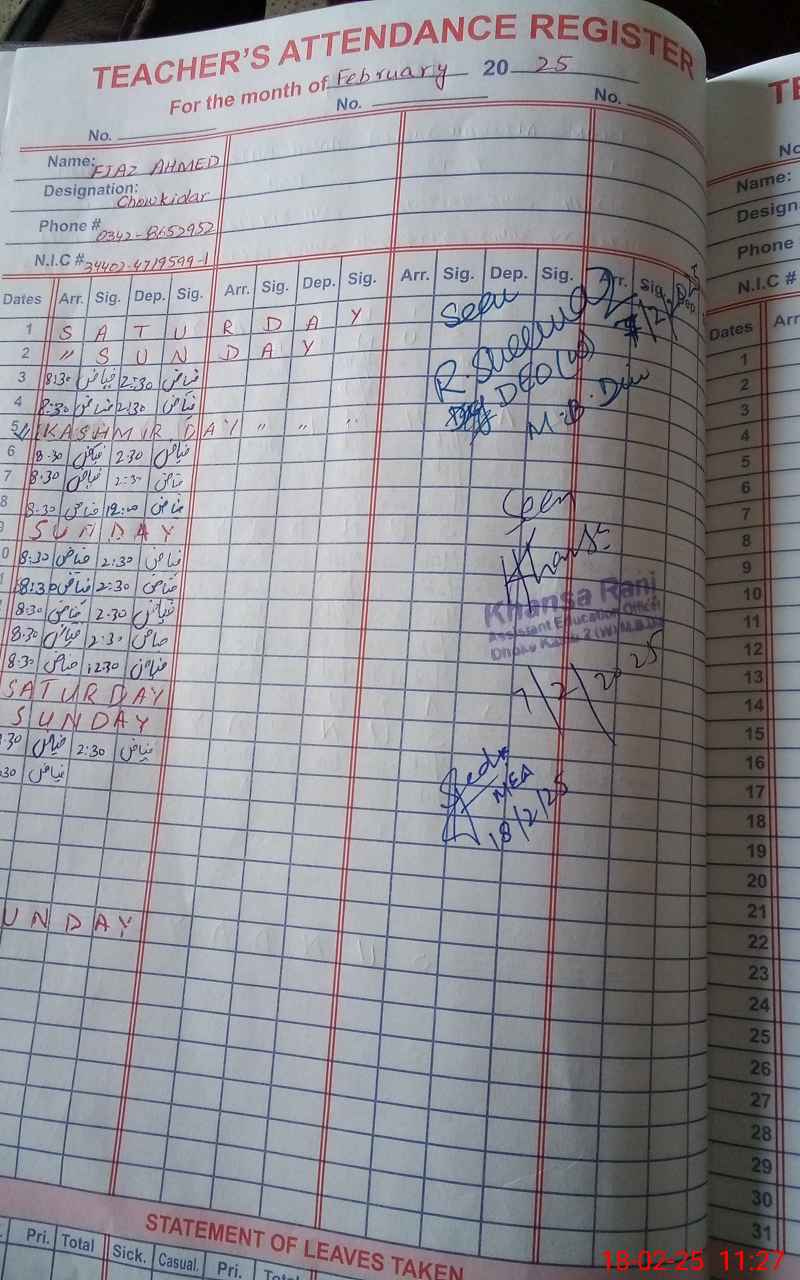 TEACHER'S ATTENDANCE REGISTER
For the month of February 20 25
No. No. No.
Name: FIAZ AHMED
Designation: Chowkidar
Phone # 0342-8652952
N.I.C # 34402-4719599-1
Dates Arr. Sig. Dep. Sig. Arr. Sig. Dep. Sig. Arr. Sig. Dep. Sig. Arr. Sig. Dep.
1 SATURDAY
2 " SUNDAY
3 8:30 فیاض 2:30 فیاض
4 8:30 فیاض 2:30 فیاض
5 KASHMIR DAY " " "
6 8.30 فیاض 2.30 فیاض
7 8.30 فیاض 2:30 فیاض
8 8.30 فیاض 12:00 فیاض
SUNDAY
0 8:30 فیاض 2:30 فیاض
8:30 فیاض 2:30 فیاض
8:30 فیاض 2.30 فیاض
8:30 فیاض 2:30 فیاض
8:30 فیاض 1230 فیاض
SATURDAY
SUNDAY
30 فیاض 2:30 فیاض
30 فیاض
UNDAY
Seen
DEO
M.B.Din
Seen
Khansa Rani
Assistant Education Officer
7/2/2025
MEA
18/2/25
STATEMENT OF LEAVES TAKEN
Pri. Total Sick. Casual. Pri. Total
TE
No
Name:
Design
Phone #
N.I.C #
Dates Arr
1
2
3
4
5
6
7
8
9
10
11
12
13
14
15
16
17
18
19
20
21
22
23
24
25
26
27
28
29
30
31
18-02-25 11:27